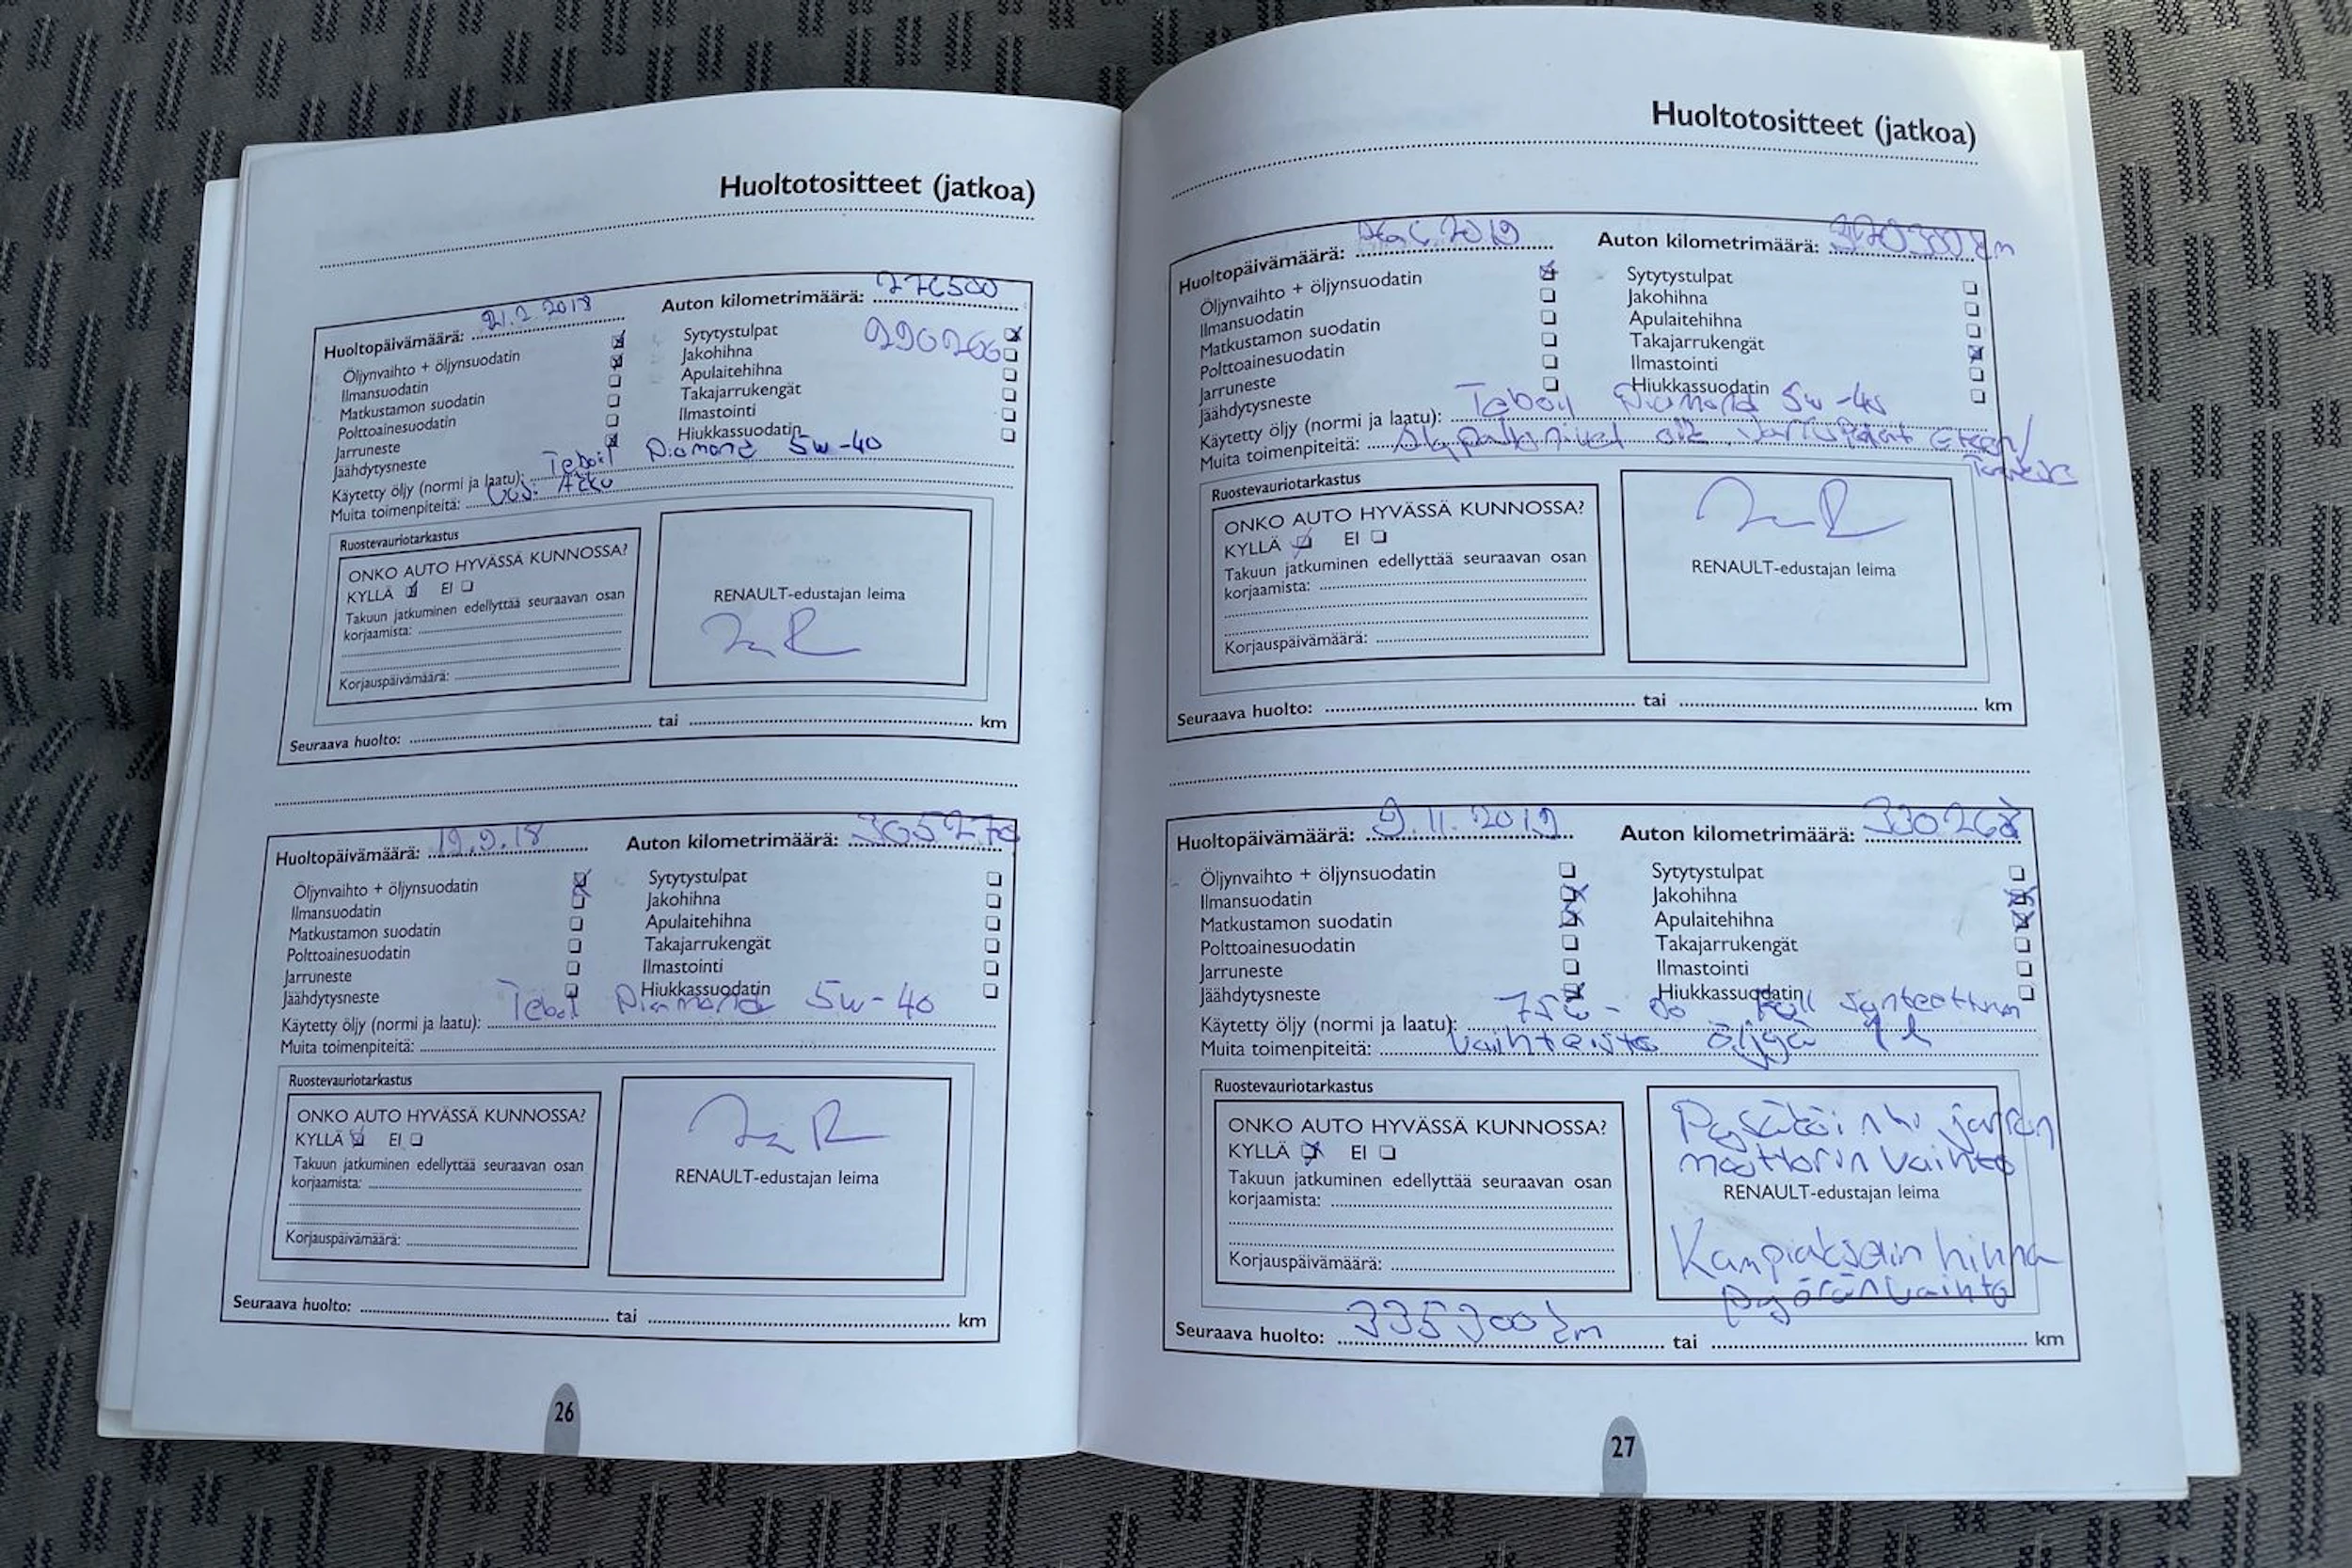 Huoltotositteet (jatkoa)
Huoltopäivämäärä: 21.2.2018 Auton kilometrimäärä: 276500
Öljynvaihto + öljynsuodatin Sytytystulpat 290266
Ilmansuodatin Jakohihna
Matkustamon suodatin Apulaitehihna
Polttoainesuodatin Takajarrukengät
Jarruneste Ilmastointi
Jäähdytysneste Hiukkassuodatin
Käytetty öljy (normi ja laatu): Teboil Diamond 5w-40
Muita toimenpiteitä: Uusi Akku
Ruostevauriotarkastus
ONKO AUTO HYVÄSSÄ KUNNOSSA?
KYLLÄ EI
Takuun jatkuminen edellyttää seuraavan osan
korjaamista:
Korjauspäivämäärä:
RENAULT-edustajan leima
Seuraava huolto: tai km
Huoltopäivämäärä: 19.9.18 Auton kilometrimäärä: 305270
Öljynvaihto + öljynsuodatin Sytytystulpat
Ilmansuodatin Jakohihna
Matkustamon suodatin Apulaitehihna
Polttoainesuodatin Takajarrukengät
Jarruneste Ilmastointi
Jäähdytysneste Hiukkassuodatin
Käytetty öljy (normi ja laatu): Teboil Diamond 5w-40
Muita toimenpiteitä:
Ruostevauriotarkastus
ONKO AUTO HYVÄSSÄ KUNNOSSA?
KYLLÄ EI
Takuun jatkuminen edellyttää seuraavan osan
korjaamista:
Korjauspäivämäärä:
RENAULT-edustajan leima
Seuraava huolto: tai km
26
Huoltotositteet (jatkoa)
Huoltopäivämäärä: Auton kilometrimäärä: 320300 km
Öljynvaihto + öljynsuodatin Sytytystulpat
Ilmansuodatin Jakohihna
Matkustamon suodatin Apulaitehihna
Polttoainesuodatin Takajarrukengät
Jarruneste Ilmastointi
Jäähdytysneste Hiukkassuodatin
Käytetty öljy (normi ja laatu): Teboil Diamond 5w-40
Muita toimenpiteitä: Jarrupalat eteen/
Ruostevauriotarkastus
ONKO AUTO HYVÄSSÄ KUNNOSSA?
KYLLÄ EI
Takuun jatkuminen edellyttää seuraavan osan
korjaamista:
Korjauspäivämäärä:
RENAULT-edustajan leima
Seuraava huolto: tai km
Huoltopäivämäärä: 9.11.2019 Auton kilometrimäärä: 330268
Öljynvaihto + öljynsuodatin Sytytystulpat
Ilmansuodatin Jakohihna
Matkustamon suodatin Apulaitehihna
Polttoainesuodatin Takajarrukengät
Jarruneste Ilmastointi
Jäähdytysneste Hiukkassuodatin
Käytetty öljy (normi ja laatu): 75w-80 Full synteettinen
Muita toimenpiteitä: Vaihteisto öljyä 1 l
Ruostevauriotarkastus
ONKO AUTO HYVÄSSÄ KUNNOSSA?
KYLLÄ EI
Takuun jatkuminen edellyttää seuraavan osan
korjaamista:
Korjauspäivämäärä:
Pysäköinti jarrun
moottorin vaihto
RENAULT-edustajan leima
Kampiakselin hihna
pyörän vaihto
Seuraava huolto: 335300 km tai km
27